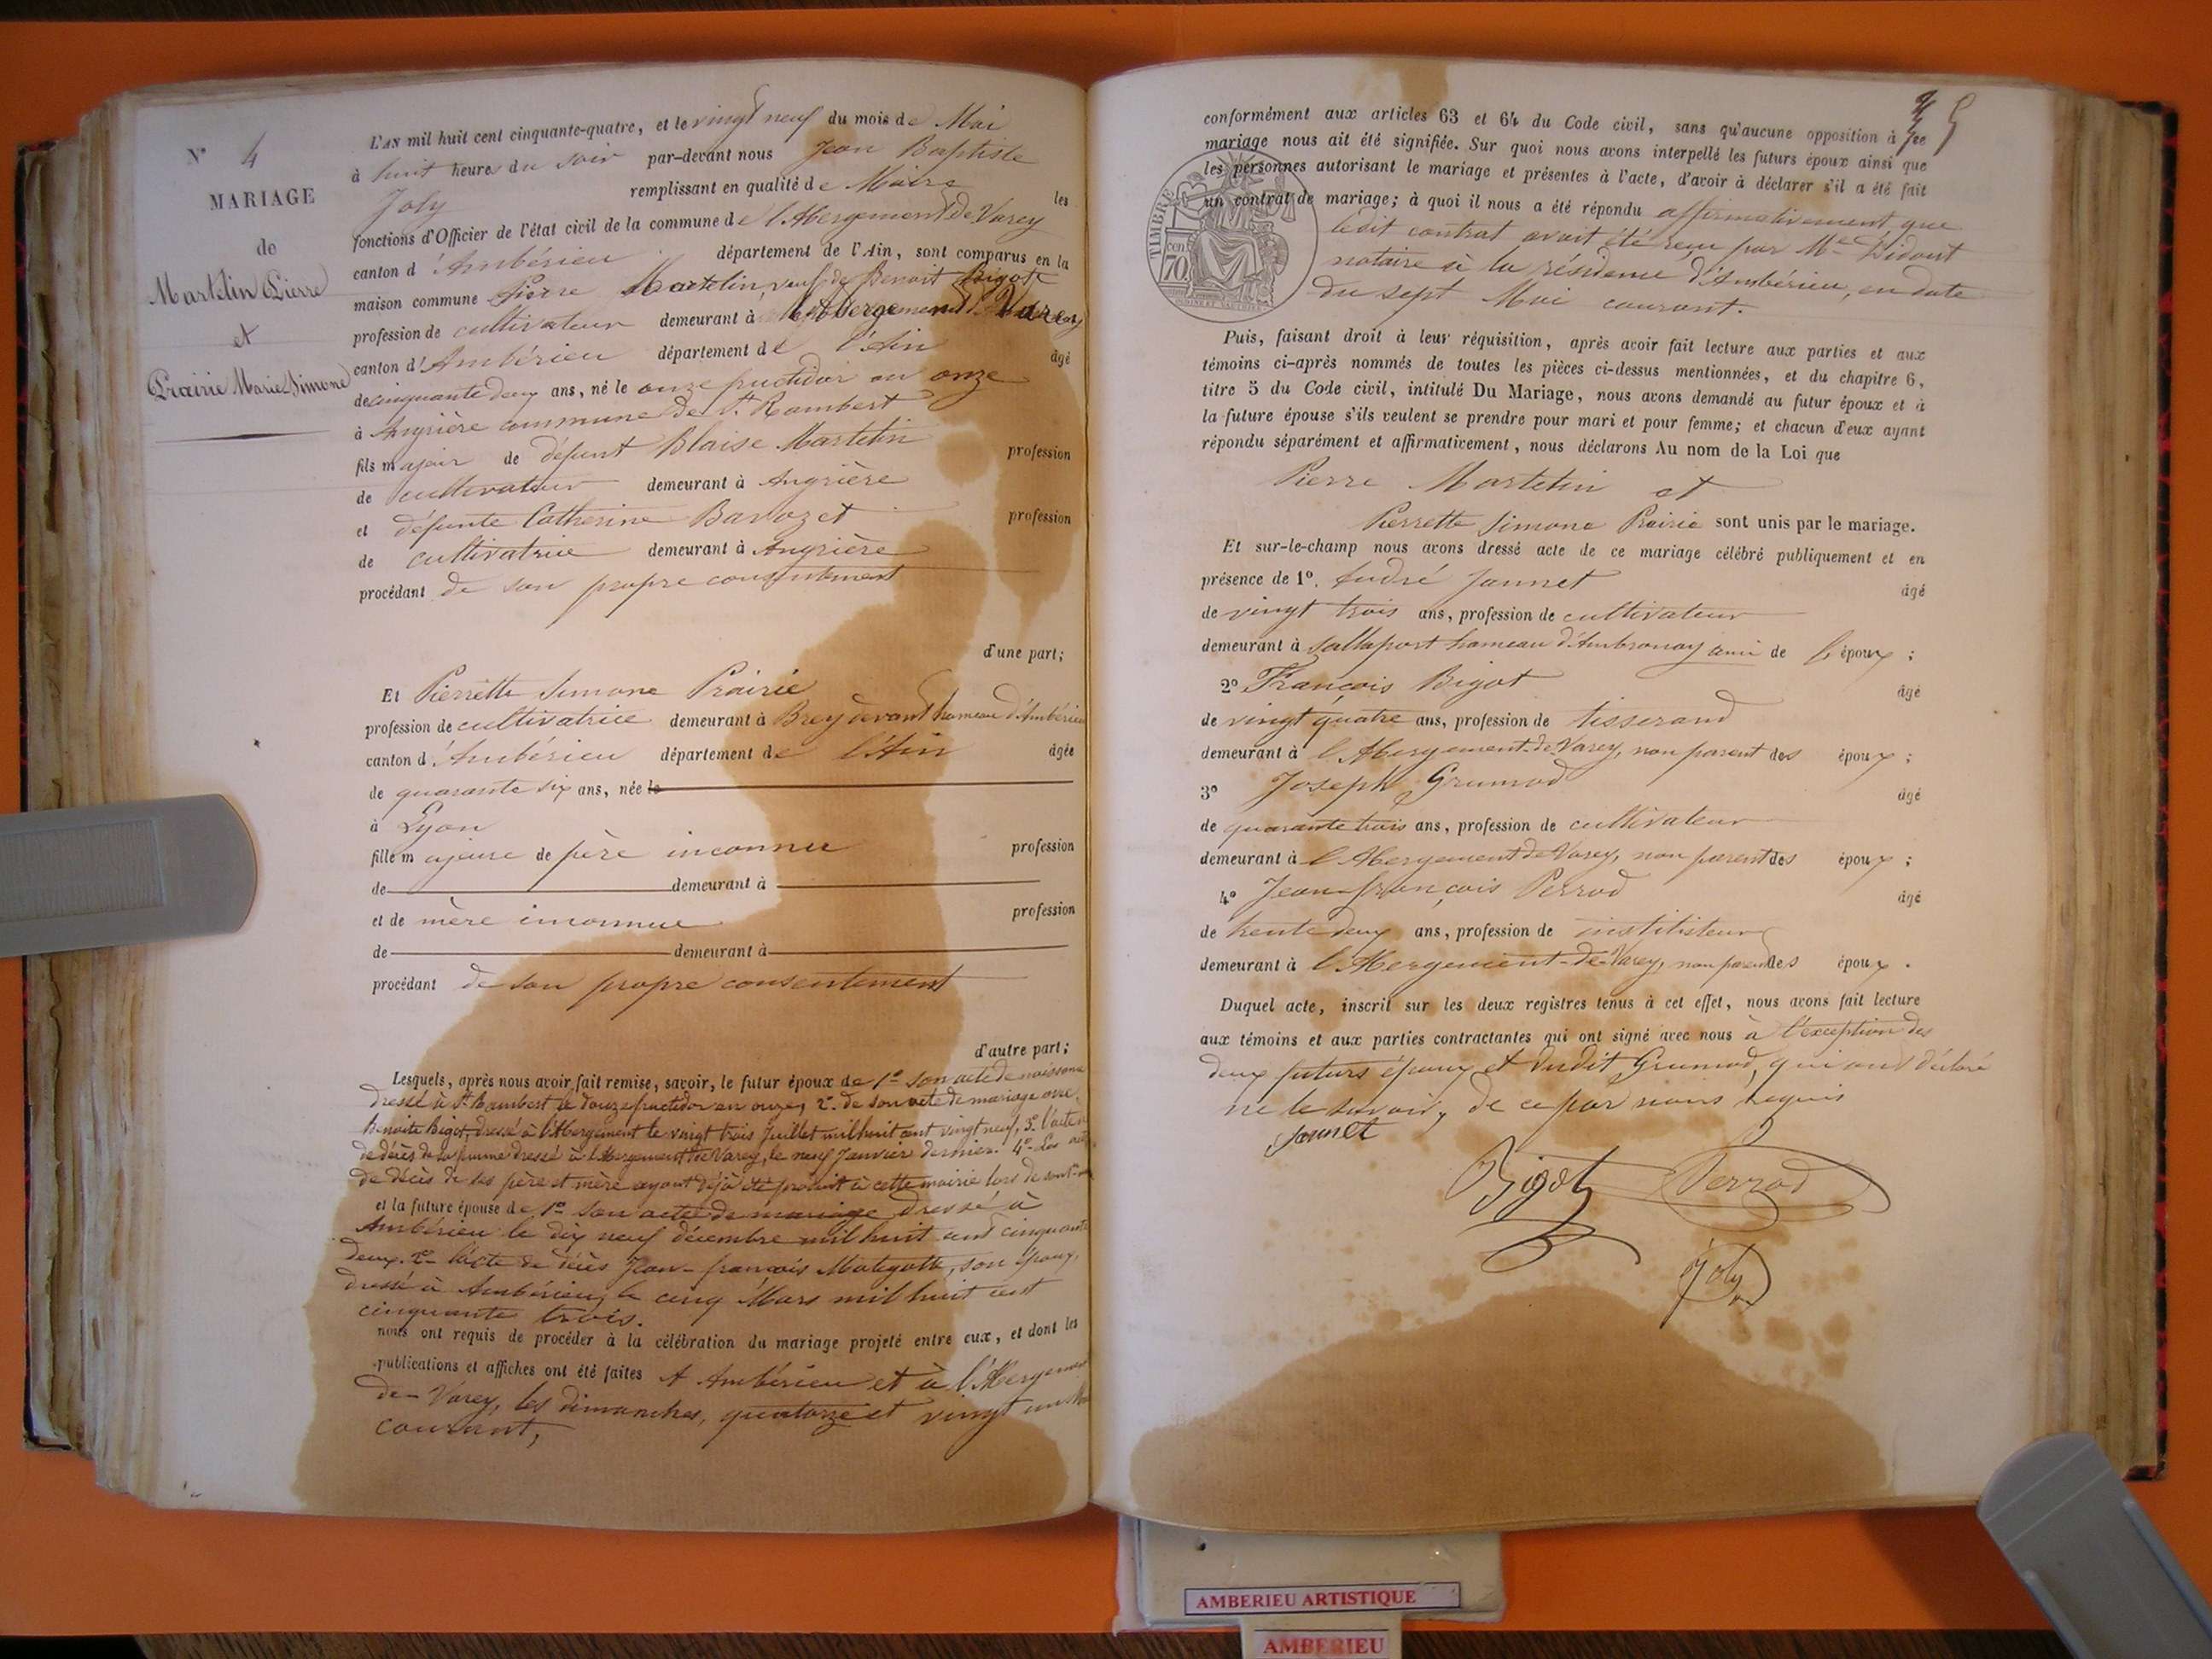 N° 4
MARIAGE
de
Martelin Pierre
et
Prairie Marie Simone
L'AN mil huit cent cinquante-quatre, et le vingt neuf du mois de Mai
à huit heures du soir par-devant nous Jean Baptiste
Joly remplissant en qualité de Maire les
fonctions d'Officier de l'état civil de la commune de l'Abergement de Varey
canton d'Ambérieu département de l'Ain, sont comparus en la
maison commune Pierre Martelin, veuf de Benoit Bigot
profession de cultivateur demeurant à l'Abergement de Varey
canton d'Ambérieu département de l'Ain âgé
de cinquante deux ans, né le onze fructidor an onze
à Angrière commune de St Rambert
fils majeur de défunt Blaise Martelin profession
de cultivateur demeurant à Angrière
et défunte Catherine Bavozet profession
de cultivatrice demeurant à Angrière
procédant de son propre consentement
d'une part;
Et Pierrette Simone Prairie
profession de cultivatrice demeurant à Brey devant hameau d'Ambérieu
canton d'Ambérieu département de l'Ain âgée
de quarante six ans, née le
à Lyon
fille majeure de père inconnu profession
de demeurant à
et de mère inconnue profession
de demeurant à
procédant de son propre consentement
d'autre part;
Lesquels, après nous avoir fait remise, savoir, le futur époux de 1° son acte de naissance
dressé à St Rambert le douze fructidor an onze, 2° de son acte de mariage avec
Benoite Bigot, dressé à l'Abergement le vingt trois Juillet mil huit cent vingt neuf, 3° l'acte
de décès de sa femme dressé à l'Abergement de Varey, le neuf Janvier dernier. 4° Les actes
de décès de ses père et mère ayant déjà été produit à cette mairie lors de son
et la future épouse de 1° son acte de mariage dressé à
Ambérieu le dix neuf décembre mil huit cent cinquante
deux. 2° l'acte de décès Jean-françois Mategotte, son époux,
dressé à Ambérieu, le cinq Mars mil huit cent
cinquante trois.
nous ont requis de procéder à la célébration du mariage projeté entre eux, et dont les
publications et affiches ont été faites A Ambérieu et à l'Abergement
de-Varey, les dimanches, quatorze et vingt un Mai
courant,
conformément aux articles 63 et 64 du Code civil, sans qu'aucune opposition à ce
mariage nous ait été signifiée. Sur quoi nous avons interpellé les futurs époux ainsi que
les personnes autorisant le mariage et présentes à l'acte, d'avoir à déclarer s'il a été fait
un contrat de mariage; à quoi il nous a été répondu affirmativement, que
TIMBRE
cen.
70
ledit contrat avait été reçu par Me Didout
notaire à la résidence d'Ambérieu, en date
du sept Mai courant.
Puis, faisant droit à leur réquisition, après avoir fait lecture aux parties et aux
témoins ci-après nommés de toutes les pièces ci-dessus mentionnées, et du chapitre 6,
titre 5 du Code civil, intitulé Du Mariage, nous avons demandé au futur époux et à
la future épouse s'ils veulent se prendre pour mari et pour femme; et chacun d'eux ayant
répondu séparément et affirmativement, nous déclarons Au nom de la Loi que
Pierre Martelin et
Pierrette Simone Prairie sont unis par le mariage.
Et sur-le-champ nous avons dressé acte de ce mariage célébré publiquement et en
présence de 1°. André Jannet âgé
de vingt trois ans, profession de cultivateur
demeurant à Sallaport hameau d'Ambronay ami de l'époux;
2° François Bigot âgé
de vingt quatre ans, profession de tisserand
demeurant à l'Abergement-de-Varey, non parent des époux;
3° Joseph Grumod âgé
de quarante trois ans, profession de cultivateur
demeurant à l'Abergement de Varey, non parent des époux;
4° Jean-françois Perrod âgé
de trente deux ans, profession de instituteur
demeurant à l'Abergement-de-Varey, non parent des époux.
Duquel acte, inscrit sur les deux registres tenus à cet effet, nous avons fait lecture
aux témoins et aux parties contractantes qui ont signé avec nous à l'exception des
deux futurs époux et dudit Grumod, qui ont déclaré
ne le savoir, de ce par nous requis
Jannet
Bigot Perrod
Joly
AMBERIEU ARTISTIQUE
AMBERIEU